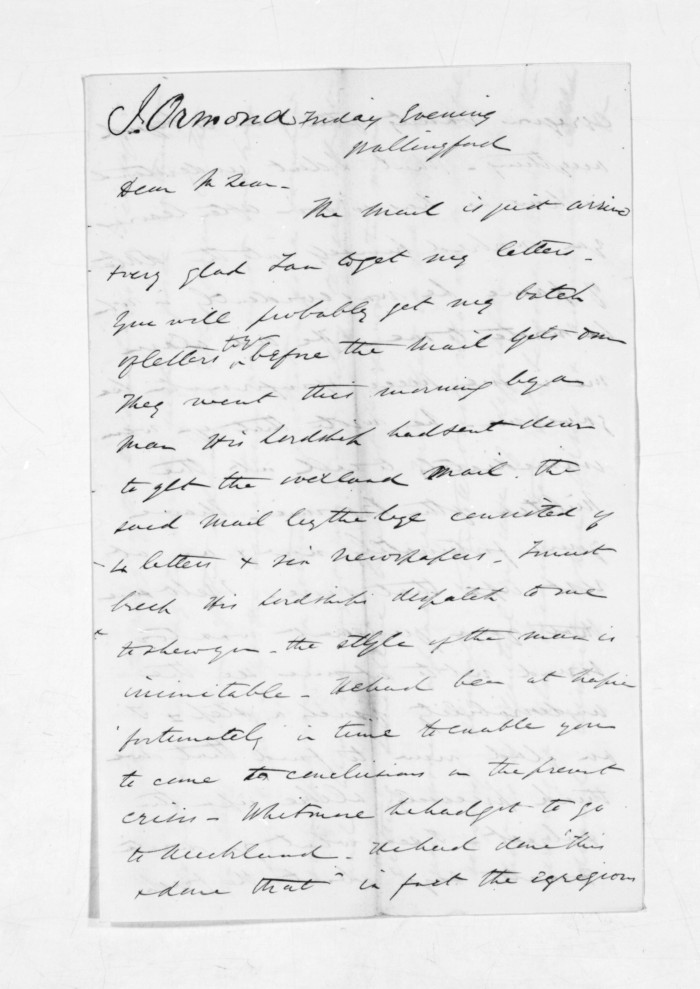 J. Ormond Friday Evening
Wallingford
Dear McLean -
The mail is just arrived
& very glad I am to get my letters -
You will probably get my batch
of letters to go before the mail gets on
They went this morning by a
man His Lordship had sent down
to get the overland mail. the
said mail by the bye consisted of
4 letters & six newspapers - I must
His Lordship's dispatch to me
to shew you - the style of the man is
inimitable - He had been at Napier
fortunately in time to enable you
to come to conclusions in the present
crisis - Whitmore he had got to go
to Auckland - He had done "this
& done that" in fact the egregious